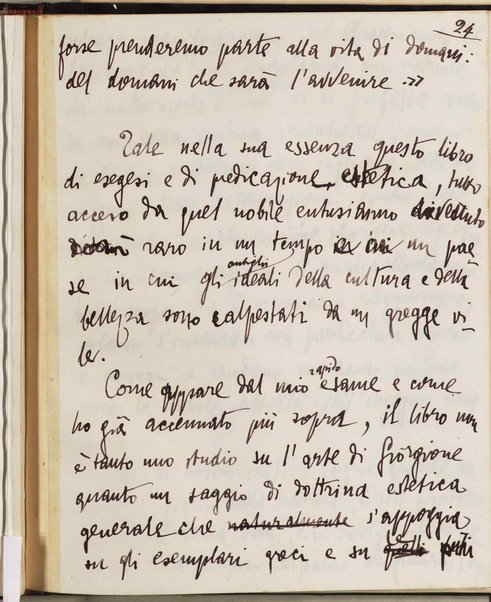 24
forse prenderemo parte alla vita di domani:
del domani che sarà l'avvenire.»
Tale nella sua essenza questo libro
di esegesi e di predicazione estetica, tutto
acceso da quel nobile entusiasmo divenuto
raro in un tempo e in un pae
se in cui gli antichi ideali della cultura e della
bellezza sono calpestati da un gregge vi
le.
Come appare dal mio rapido esame e come
ho già accennato più sopra, il libro non
è tanto uno studio su l'arte di Giorgione
quanto un saggio di dottrina estetica
generale che naturalmente s'appoggia
su gli esemplari greci e su quelli